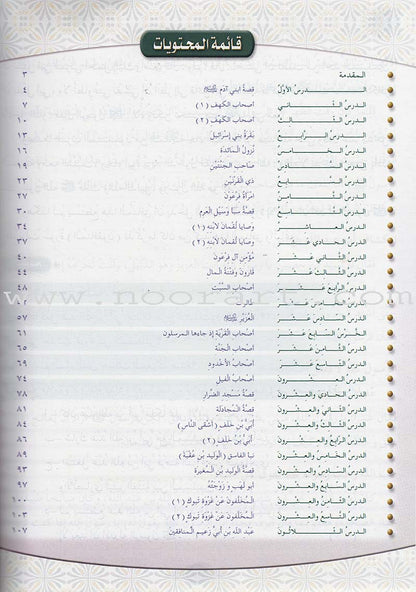 قائمة المحتويات
المقدمة ٣
الدرس الأول قصة ابني آدم ٤
الدرس الثاني أصحاب الكهف (١) ٧
الدرس الثالث أصحاب الكهف (٢) ١٠
الدرس الرابع بقرة بني إسرائيل ١٣
الدرس الخامس نزول المائدة ١٦
الدرس السادس صاحب الجنتين ١٩
الدرس السابع ذي القرنين ٢٣
الدرس الثامن امرأة فرعون ٢٧
الدرس التاسع قصة سبأ وسيل العرم ٣٠
الدرس العاشر وصايا لقمان لابنه (١) ٣٤
الدرس الحادي عشر وصايا لقمان لابنه (٢) ٣٧
الدرس الثاني عشر مؤمن آل فرعون ٤٠
الدرس الثالث عشر قارون وفتنة المال ٤٤
الدرس الرابع عشر أصحاب السبت ٤٨
الدرس الخامس عشر
الدرس السادس عشر العزير ٥٧
الدرس السابع عشر أصحاب القرية إذ جاءها المرسلون ٦١
الدرس الثامن عشر أصحاب الجنة ٦٥
الدرس التاسع عشر أصحاب الأخدود ٦٩
الدرس العشرون أصحاب الفيل ٧٤
الدرس الحادي والعشرون قصة مسجد الضرار ٧٨
الدرس الثاني والعشرون قصة المجادلة ٨١
الدرس الثالث والعشرون أبي بن خلف (أشقى الناس) ٨٤
الدرس الرابع والعشرون أبي بن خلف (٢) ٨٦
الدرس الخامس والعشرون نبأ الفاسق (الوليد بن عقبة) ٨٩
الدرس السادس والعشرون قصة الوليد بن المغيرة ٩٣
الدرس السابع والعشرون أبو لهب وزوجته ٩٧
الدرس الثامن والعشرون المخلفون عن غزوة تبوك (١) ١٠٠
الدرس التاسع والعشرون المخلفون عن غزوة تبوك (٢) ١٠٣
الدرس الثلاثون عبد الله بن أبي زعيم المنافقين ١٠٧